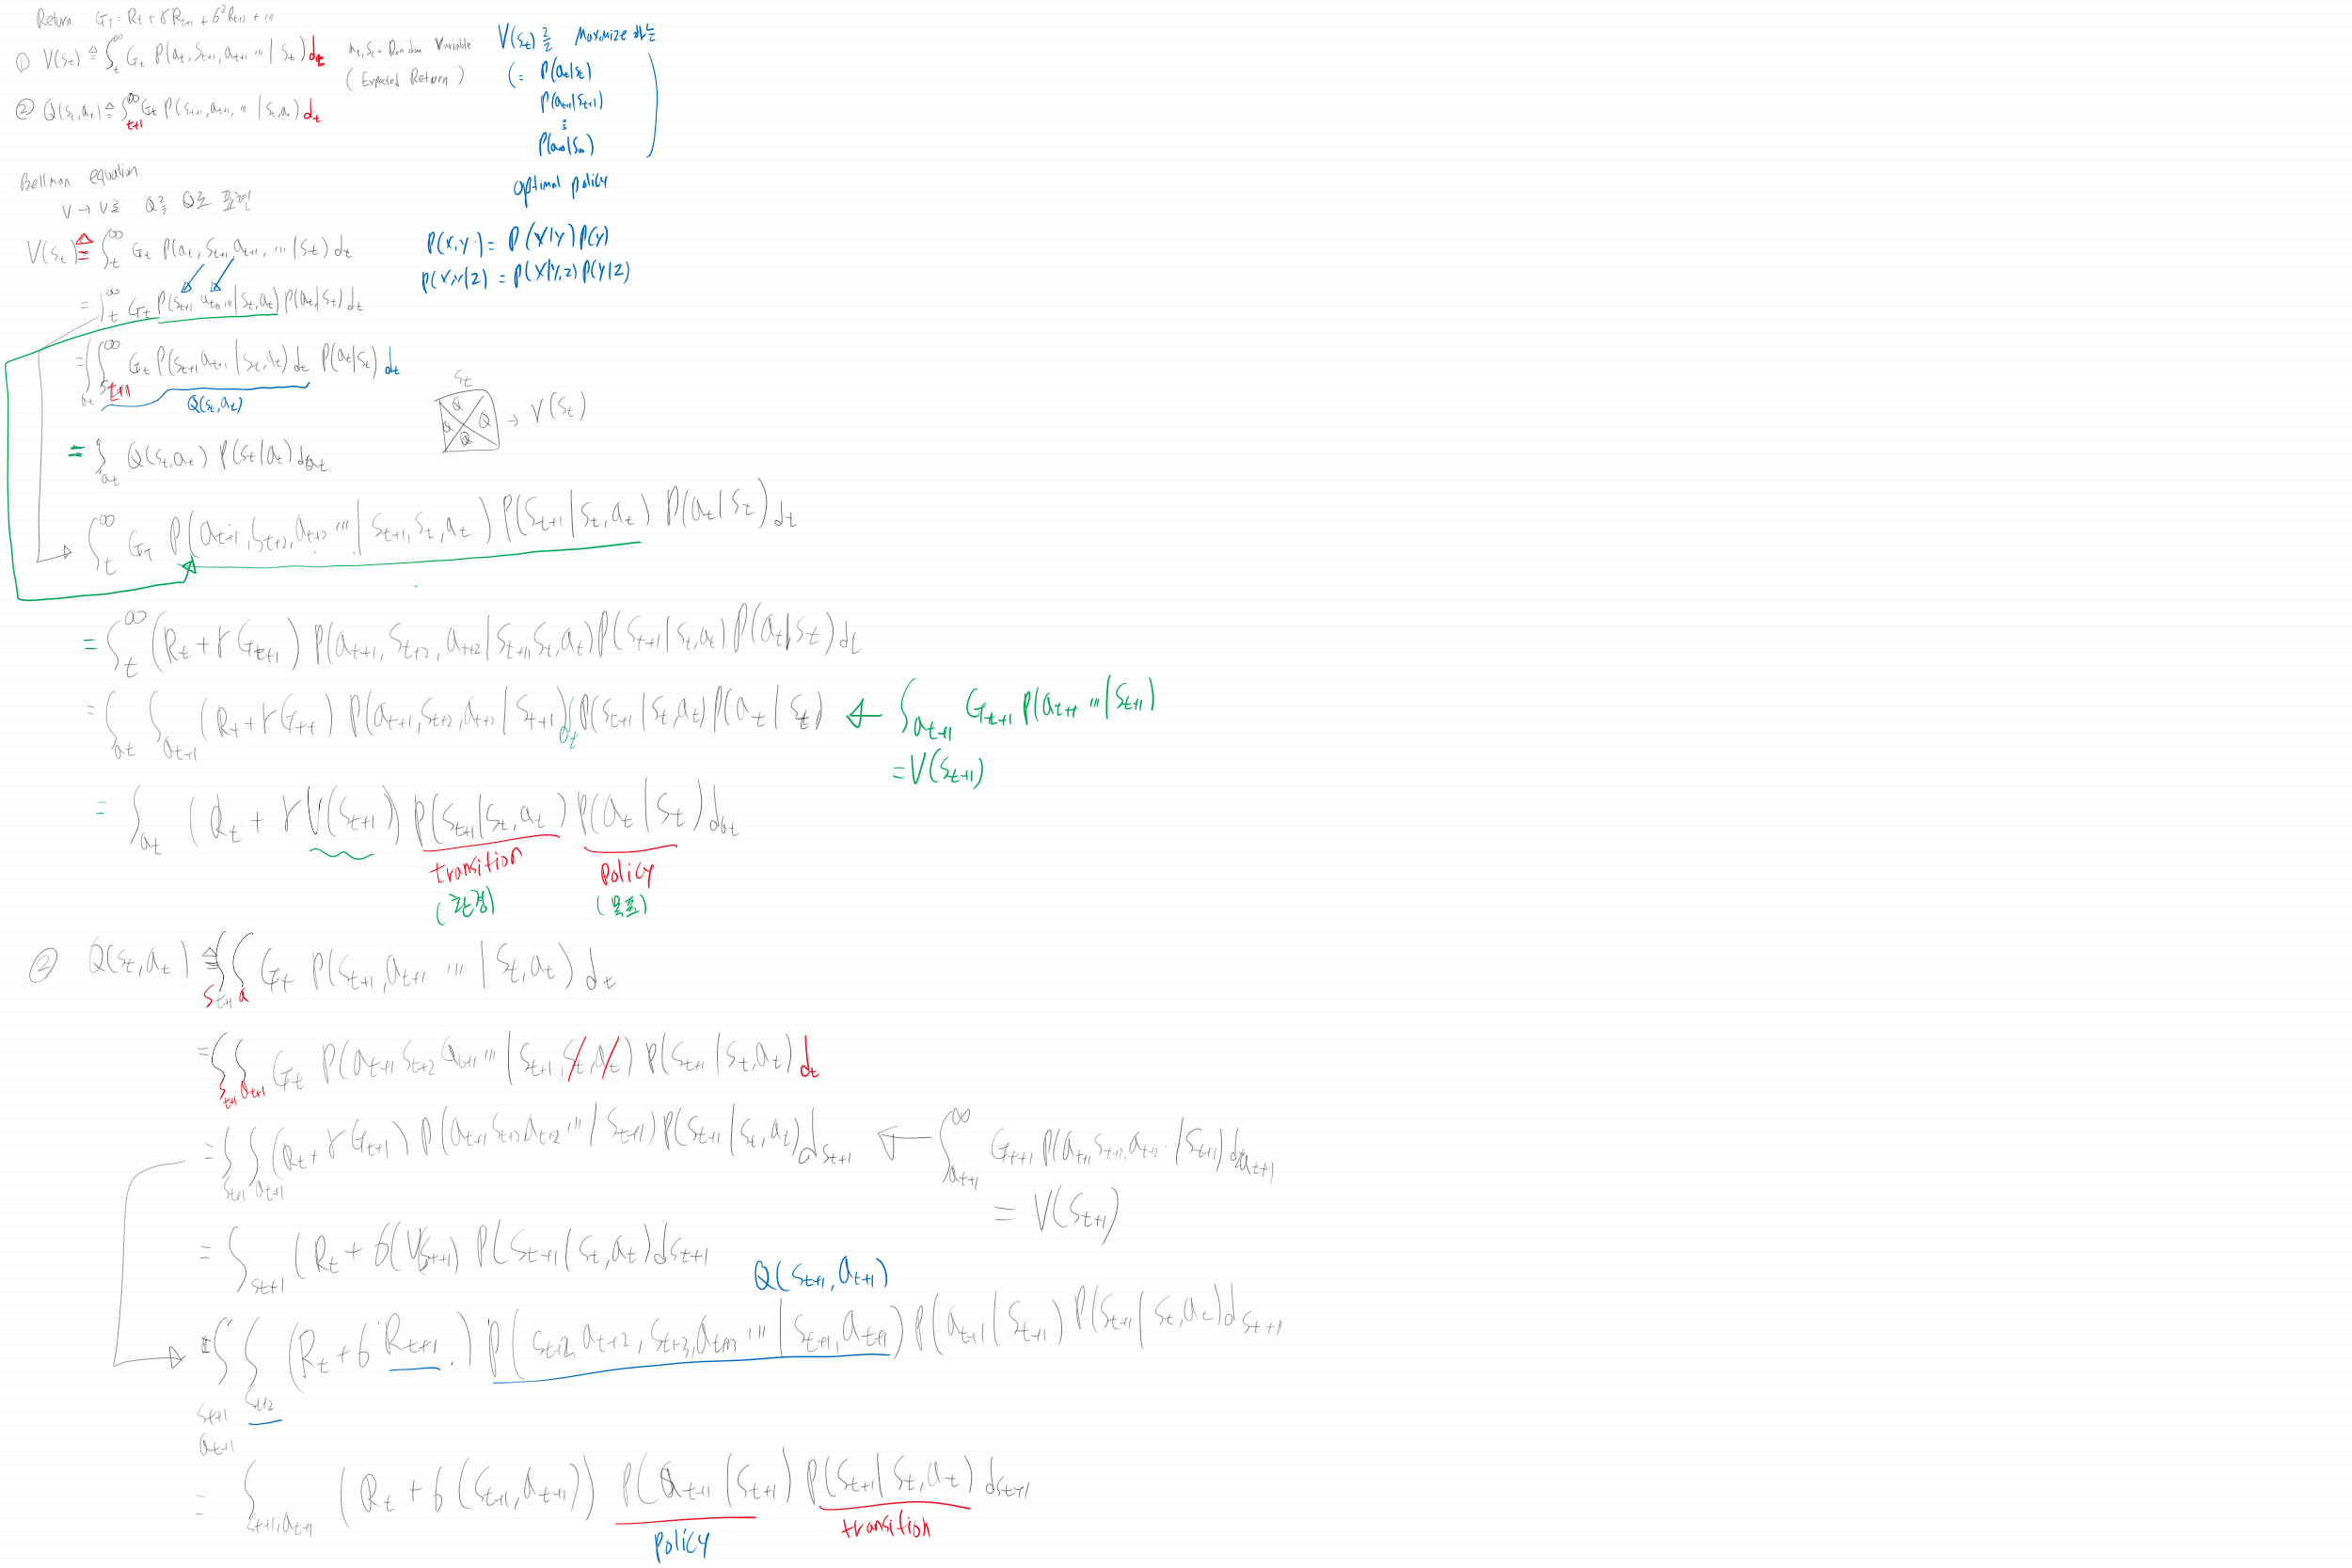 Return G_T = R_t + γR_{t+1} + γ²R_{t+2} + ...
① V(s_t) ≜ ∫_t^∞ G_t P(a_t, s_{t+1}, a_{t+1} ... | s_t) d_t
a_t, s_t = Random Variable
(Expected Return)
② Q(s_t, a_t) ≜ ∫_{t+1}^∞ G_t P(s_{t+1}, a_{t+1}, ... | s_t, a_t) d_t
V(s_t)를 Maximize 하는
(= P(a_t|s_t)
P(a_{t+1}|s_{t+1})
⋮
P(a_∞|s_∞) )
optimal policy
Bellman equation
V → V로 Q를 Q로 표현
V(s_t) ≜ ∫_t^∞ G_t P(a_t, s_{t+1}, a_{t+1}, ... | s_t) d_t
P(x,y) = P(x|y) P(y)
P(x,y|z) = P(x|y,z) P(y|z)
= ∫_t^∞ G_t P(s_{t+1} a_{t+1} ... | s_t, a_t) P(a_t|s_t) d_t
= ∫_{a_t} ∫_{s_{t+1}}^∞ G_t P(s_{t+1} a_{t+1} | s_t, a_t) d_t P(a_t|s_t) d_t
Q(s_t, a_t)
s_t
Q Q Q Q → V(s_t)
= ∫_{a_t} Q(s_t, a_t) P(s_t|a_t) d_{a_t}
∫_t^∞ G_T P(a_{t+1}, s_{t+2}, a_{t+2} ... | s_{t+1}, s_t, a_t) P(s_{t+1} | s_t, a_t) P(a_t | s_t) d_t
= ∫_t^∞ (R_t + γ G_{t+1}) P(a_{t+1}, s_{t+2}, a_{t+2} | s_{t+1} s_t, a_t) P(s_{t+1} | s_t, a_t) P(a_t | s_t) d_t
= ∫_{a_t} ∫_{a_{t+1}} (R_t + γ G_{tt}) P(a_{t+1}, s_{t+2}, a_{t+2} | s_{t+1}) d_t P(s_{t+1} | s_t, a_t) P(a_t | s_t) ← ∫_{a_{t+1}} G_{t+1} P(a_{t+1} ... | s_{t+1})
= V(s_{t+1})
= ∫_{a_t} (R_t + γ V(s_{t+1})) P(s_{t+1} | s_t, a_t) P(a_t | s_t) d_{a_t}
transition policy
(환경) (목표)
② Q(s_t, a_t) ≜ ∫_{s_{t+1}} ∫_a G_t P(s_{t+1}, a_{t+1} ... | s_t, a_t) d_t
= ∫_{s_{t+1}} ∫_{a_{t+1}} G_t P(a_{t+1} s_{t+2} a_{t+1} ... | s_{t+1}, s_t, a_t) P(s_{t+1} | s_t, a_t) d_t
= ∫_{s_{t+1}} ∫_{a_{t+1}} (R_t + γ G_{t+1}) P(a_{t+1} s_{t+2} a_{t+2} ... | s_{t+1}) P(s_{t+1} | s_t, a_t) d_{s_{t+1}} ← ∫_{a_{t+1}}^∞ G_{t+1} P(a_{t+1} s_{t+2}, a_{t+2} .. | s_{t+1}) d_{a_{t+1}}
= V(s_{t+1})
= ∫_{s_{t+1}} (R_t + γ(V(s_{t+1}) P(s_{t+1} | s_t, a_t) d s_{t+1}
Q(s_{t+1}, a_{t+1})
= ∫_{s_{t+1} a_{t+1}} ∫_{s_{t+2}} (R_t + γ R_{t+1} .) P(s_{t+2} a_{t+2}, s_{t+3}, a_{t+3} ... | s_{t+1}, a_{t+1}) P(a_{t+1} | s_{t+1}) P(s_{t+1} | s_t, a_t) d_{s_{t+1}}
= ∫_{s_{t+1}, a_{t+1}} (R_t + γ(s_{t+1}, a_{t+1})) P(a_{t+1} | s_{t+1}) P(s_{t+1} | s_t, a_t) d_{s_{t+1}}
policy transition